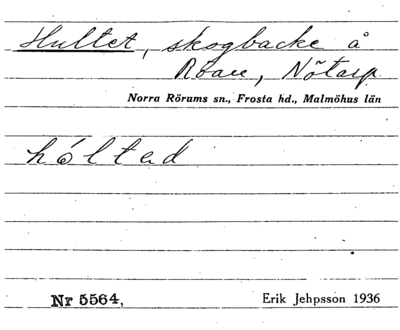 Hultet, skogbacke å
Röan, Nötarp
Norra Rörums sn., Frosta hd., Malmöhus län
hóltad
Nr 5564,
Erik Jehpsson 1936